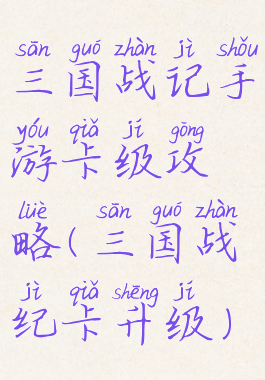 sān guó zhàn jì shǒu
三国战记手
yóu qiǎ jí gōng
游卡级攻
lüè sān guó zhàn
略(三国战
jì qiǎ shēng jí
纪卡升级)